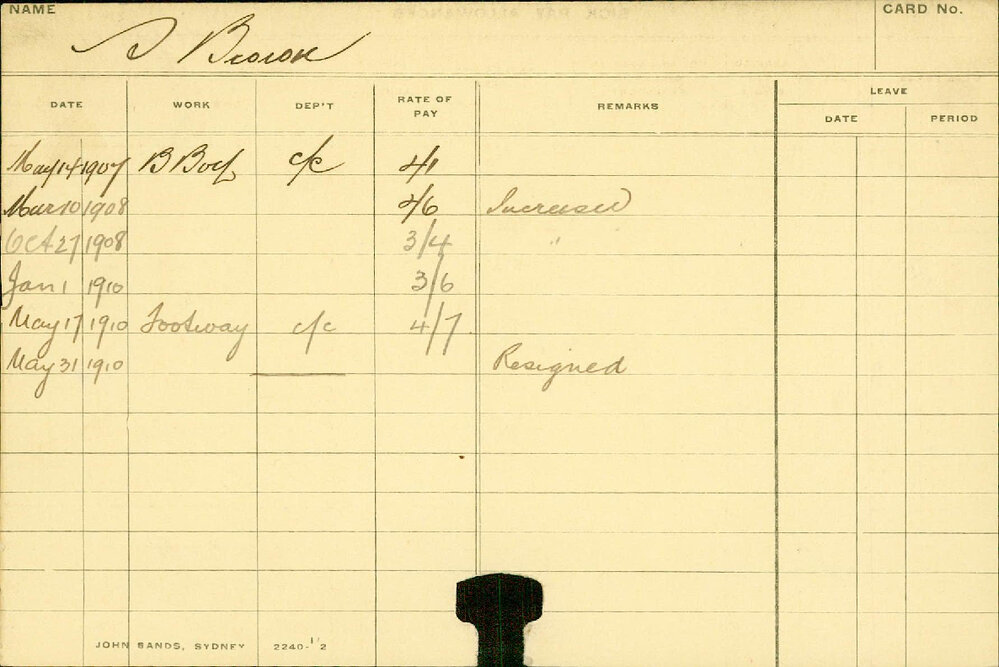 NAME
S Brown
CARD No.
DATE WORK DEP'T RATE OF PAY REMARKS LEAVE
DATE PERIOD
May 14 1907 B Boy c/c 2/1
Mar 10 1908 2/6 Increased
Oct 27 1908 3/4 "
Jan 1 1910 3/6
May 17 1910 Footway c/c 4/7
May 31 1910 Resigned
JOHN SANDS, SYDNEY 2240-1'2